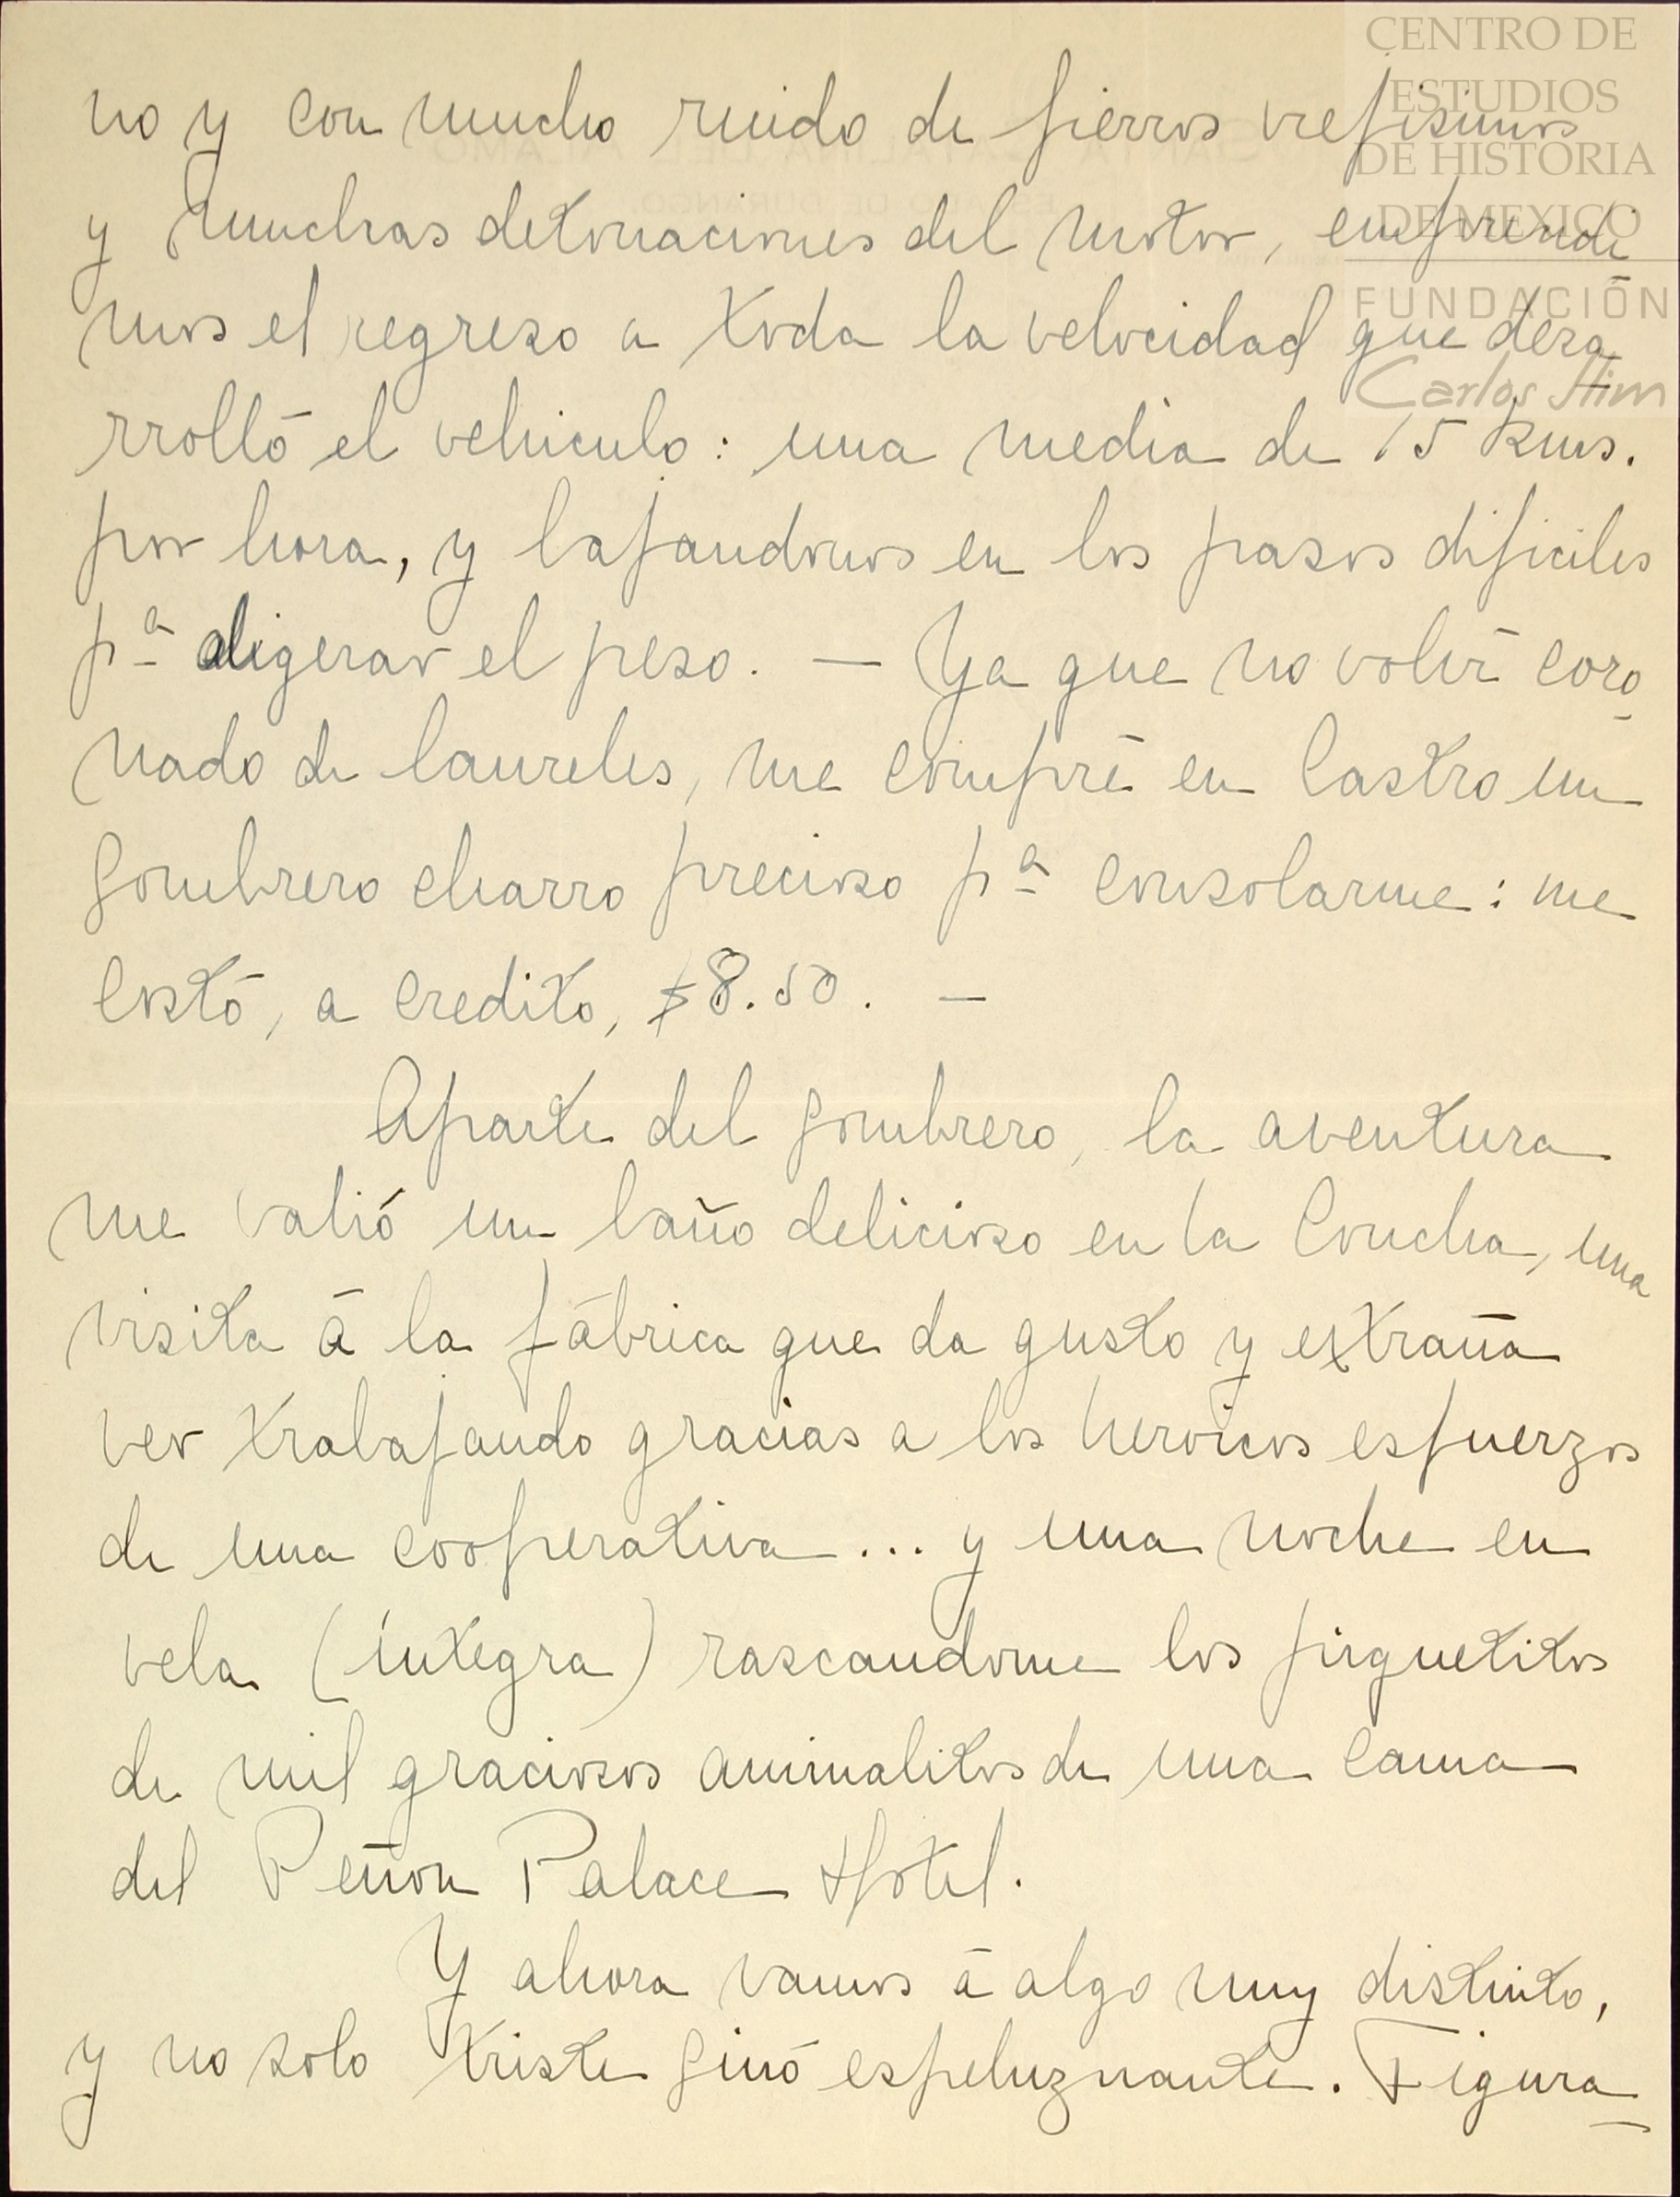 CENTRO DE
ESTUDIOS
DE HISTORIA
DE MEXICO
FUNDACIÓN
Carlos Slim
no y con mucho ruido de fierros viejisimos
y muchas detonaciones del motor, emprendi
mos el regreso a toda la velocidad que desa
rrolló el vehiculo: una media de 15 Kms.
por hora, y bajandonos en los pasos dificiles
pª aligerar el peso. — Ya que no volví coro
nado de laureles, me compré en Castro un
sombrero charro precioso pª consolarme: me
costó, a credito, $8.50. —
Aparte del sombrero, la aventura
me valió un baño delicioso en la Concha, una
visita á la fábrica que da gusto y extraña
ver trabajando gracias a los heroicos esfuerzos
de una cooperativa ... y una noche en
vela (íntegra) rascandome los piquetitos
de mil graciosos animalitos de una cama
del Peñon Palace Hotel.
Y ahora vamos á algo muy distinto,
y no solo triste sinó espeluznante. Figura